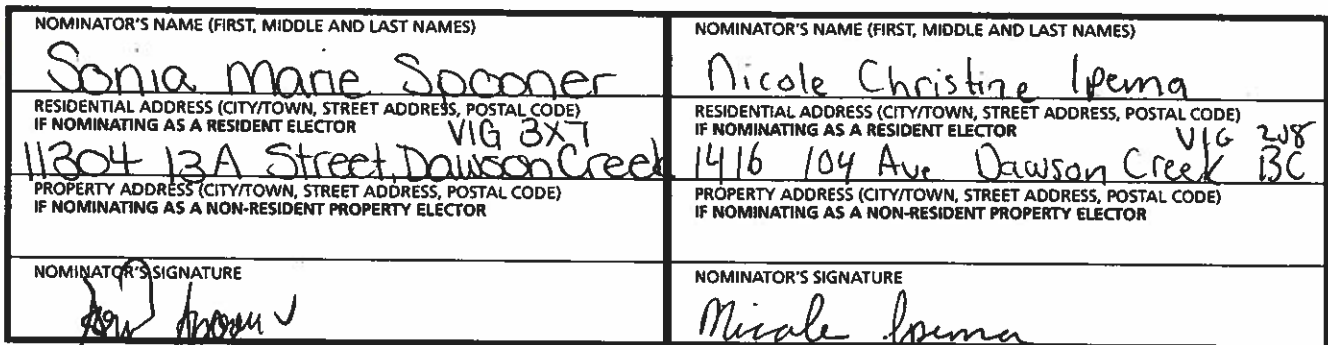 NOMINATOR'S NAME (FIRST, MIDDLE AND LAST NAMES)
Sonia Marie Spooner
RESIDENTIAL ADDRESS (CITY/TOWN, STREET ADDRESS, POSTAL CODE)
IF NOMINATING AS A RESIDENT ELECTOR
V1G 3X7
11304 13A Street, Dawson Creek
PROPERTY ADDRESS (CITY/TOWN, STREET ADDRESS, POSTAL CODE)
IF NOMINATING AS A NON-RESIDENT PROPERTY ELECTOR
NOMINATOR'S SIGNATURE
NOMINATOR'S NAME (FIRST, MIDDLE AND LAST NAMES)
Nicole Christine Ipema
RESIDENTIAL ADDRESS (CITY/TOWN, STREET ADDRESS, POSTAL CODE)
IF NOMINATING AS A RESIDENT ELECTOR
V1G
1416 104 Ave Dawson Creek BC
PROPERTY ADDRESS (CITY/TOWN, STREET ADDRESS, POSTAL CODE)
IF NOMINATING AS A NON-RESIDENT PROPERTY ELECTOR
NOMINATOR'S SIGNATURE
Nicole Ipema